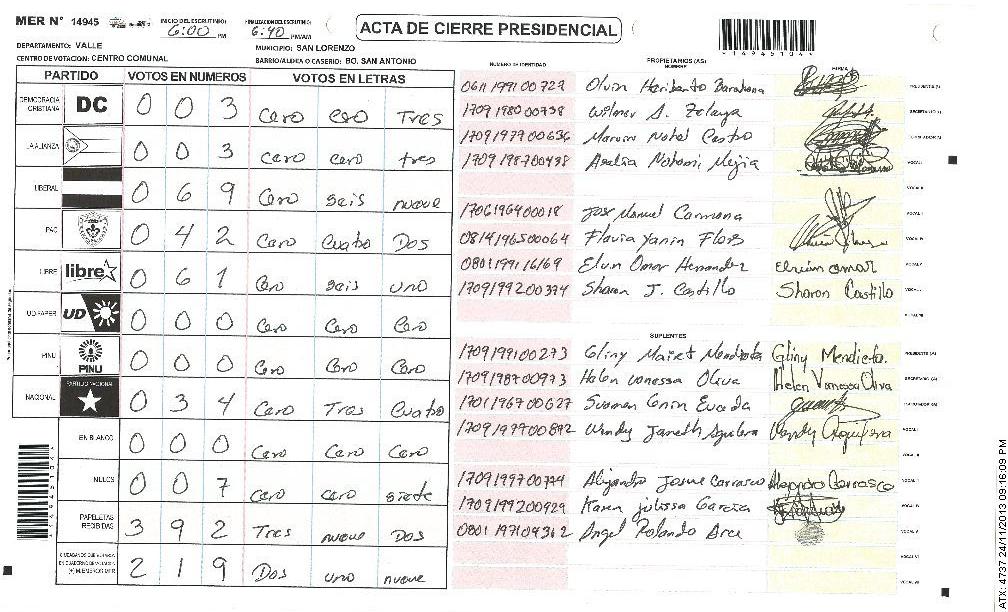 MER N° 14945
INICIO DEL ESCRUTINIO
6:00 PM
FINALIZACION DEL ESCRUTINIO
6:40 PM/AM
ACTA DE CIERRE PRESIDENCIAL
14945104
DEPARTAMENTO: VALLE
MUNICIPIO: SAN LORENZO
CENTRO DE VOTACION: CENTRO COMUNAL
BARRIO/ALDEA O CASERIO: BO. SAN ANTONIO
PARTIDO VOTOS EN NUMEROS VOTOS EN LETRAS
DEMOCRACIA CRISTIANA DC 0 0 3 Cero Cero Tres
LA ALIANZA 0 0 3 Cero Cero tres
LIBERAL 0 6 9 Cero Seis nueve
PAC 0 4 2 Cero Cuatro Dos
LIBRE libre 0 6 1 Cero Seis uno
UD FAPER UD 0 0 0 Cero Cero Cero
PINU PINU 0 0 0 Cero Cero Cero
NACIONAL PARTIDO NACIONAL 0 3 4 Cero Tres Cuatro
EN BLANCO 0 0 0 Cero Cero Cero
NULOS 0 0 7 Cero Cero siete
PAPELETAS RECIBIDAS 3 9 2 Tres nueve Dos
CIUDADANOS QUE VOTARON EN CUADERNO DE VOTACION (+) MIEMBROS MER 2 1 9 Dos uno nueve
NUMERO DE IDENTIDAD
PROPIETARIOS (AS)
NOMBRE
FIRMA
0611199100729 Olvin Heriberto Barahona PRESIDENTE (A)
1709198000738 Wilmer A. Zelaya SECRETARIO (A)
1709197700636 Marvin Notal Castro ESCRUTADOR (A)
1709198700438 Azalia Nohemi Mejia VOCAL I
VOCAL II
1706196400018 Jose Manuel Carmona VOCAL
0814196500064 Flavia Yanin Flores VOCAL IV
0801199116169 Elvin Omar Hernandez VOCAL V
1709199200374 Sharon J. Castillo Sharon Castillo VOCAL
SUPLENTES
1709199100273 Gliny Mairet Mendieta Gliny Mendieta. PRESIDENTE (A)
1709198700973 Helen Vanessa Oliva Helen Vanessa Oliva SECRETARIO (A)
1701196700627 ESCRUTADOR (A)
1709197700892 Wendy Janeth Aguilera Wendy Aguilera VOCAL I
VOCAL II
1709199700744 Alejandro Josue Carrasco Alejandro Carrasco VOCAL
1709199200929 Karen Julissa Garcia VOCAL IV
0801197104362 Angel Rolando Arce VOCAL V
VOCAL VI
VOCAL VII
ATX: 4737 24/11/2013 09:16:09 PM